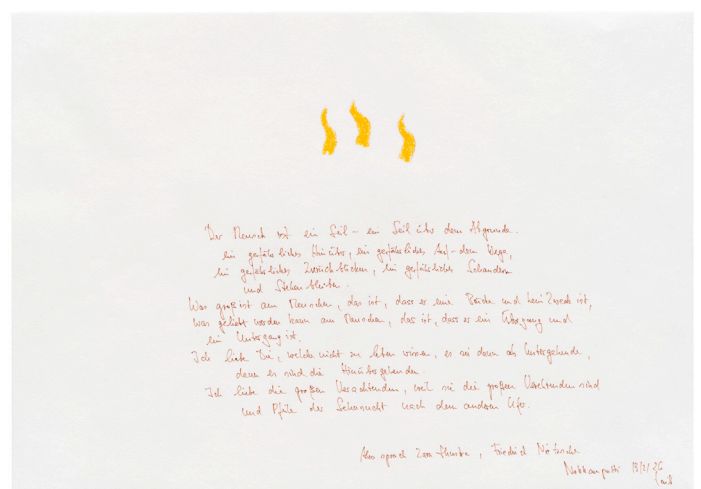 Der Mensch ist ein Seil – ein Seil über dem Abgrunde.
Ein gefährliches Hinüber, ein gefährliches Auf-dem Wege,
ein gefährliches Zurückblicken, ein gefährliches Schaudern
und Stehenbleiben.
Was groß ist am Menschen, das ist, dass er eine Brücke und kein Zweck ist,
was geliebt werden kann am Menschen, das ist, dass er ein Übergang und
ein Untergang ist.
Ich liebe Die, welche nicht zu leben wissen, es sei denn als Untergehende,
denn es sind die Hinübergehenden.
Ich liebe die großen Verachtenden, weil sie die großen Verehrenden sind
und Pfeile der Sehnsucht nach dem anderen Ufer.
Also sprach Zarathustra, Friedrich Nietzsche
13/2/26